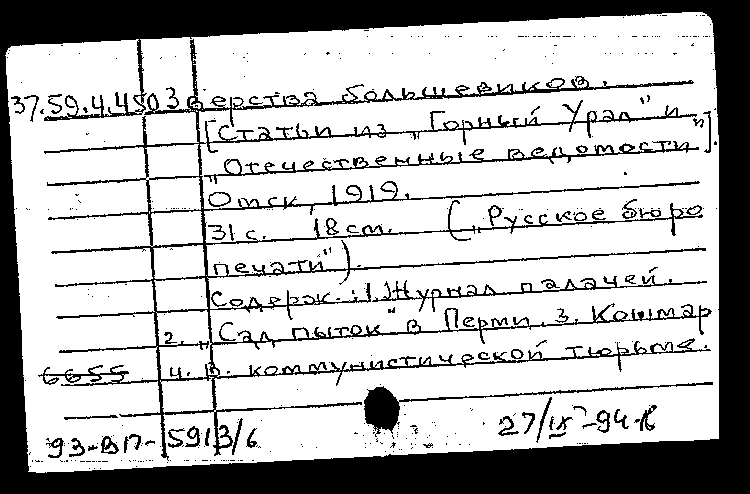 37.59.4.450 Зверства большевиков.
[Статьи из „Горный Урал" и
„Отечественные ведомости"].
Омск, 1919.
31 с. 18 см. („Русское бюро
печати").
Содерж.: 1. Журнал палачей.
2. „Сад пыток" в Перми. 3. Кошмар
6655 4. В. коммунистической тюрьме.
93-ВП-5913/6 27/IX-94